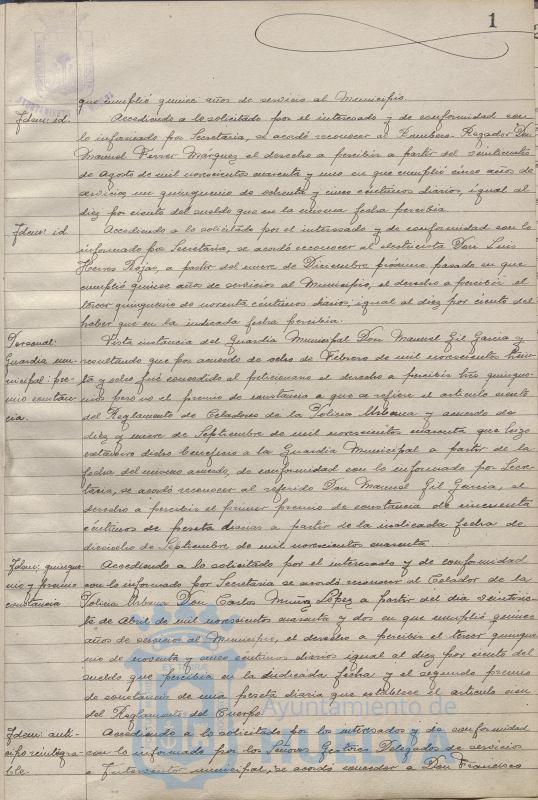 1
que cumplió quince años de servicio al Municipio.
Idem: id. Accediendo a lo solicitado por el interesado y de conformidad con
lo informado por Secretaría, se acordó reconocer al Bombero-Regador Don
Manuel Ferrer Márquez el derecho a percibir a partir del veinticuatro
de Agosto de mil novecientos cuarenta y uno en que cumplió cinco años de
servicios, un quinquenio de ochenta y cinco céntimos diarios, igual al
diez por ciento del sueldo que en la misma fecha percibía.
Idem: id Accediendo a lo solicitado por el interesado y de conformidad con lo
informado por Secretaría, se acordó reconocer al electricista Don Luis
Rojas, a partir del nueve de Diciembre próximo pasado en que
cumplió quince años de servicios al Municipio, el derecho a percibir el
tercer quinquenio de noventa céntimos diarios, igual al diez por ciento del
haber que en la indicada fecha percibía.
Personal: Vista instancia del Guardia Municipal Don Manuel Gil Garcia y
Guardia mu- resultando que por acuerdo de ocho de Febrero de mil novecientos trein-
nicipal: pre- ta y ocho fué concedido al peticionario el derecho a percibir tres quinque-
mio constan- nios pero no el premio de constancia a que se refiere el artículo ciento
cia. del Reglamento de Celadores de la Policía Urbana y acuerdo de
diez y nueve de Septiembre de mil novecientos cuarenta que hizo
extensivo dicho beneficio a la Guardia Municipal a partir de la
fecha del mismo acuerdo, de conformidad con lo informado por Secre-
taría, se acordó reconocer al referido Don Manuel Gil Garcia, el
derecho a percibir el primer premio de constancia de cincuenta
céntimos de peseta diarios a partir de la indicada fecha de
de Septiembre de mil novecientos cuarenta.
Idem: quinque- Accediendo a lo solicitado por el interesado y de conformidad
nio y premio con lo informado por Secretaría se acordó reconocer al Celador de la
constancia Policía Urbana Don Carlos Muñoz López a partir del día veintisie-
te de Abril de mil novecientos cuarenta y dos en que cumplió quince
años de servicios al Municipio, el derecho a percibir el tercer quinque-
nio de noventa y cinco céntimos diarios igual al diez por ciento del
sueldo que percibía en la indicada fecha y el segundo premio
de constancia de una peseta diaria que establece el artículo cien
del Reglamento del Cuerpo.
Ayuntamiento de
HUELVA
Idem: anti- Accediendo a lo solicitado por los interesados y de conformidad
cipo reintegra- con lo informado por los Señores Gestores Delegados de servicios
ble. e Interventor municipal, se acordó conceder a Don Francisco